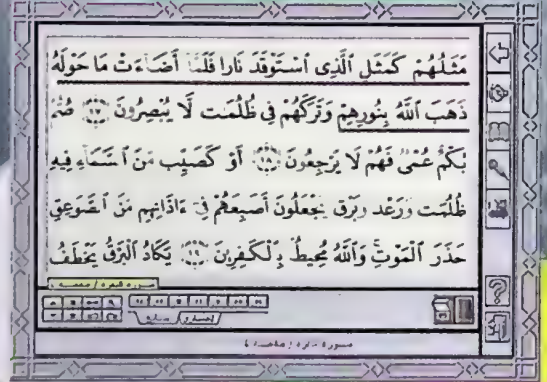 مَثَلُهُمْ كَمَثَلِ ٱلَّذِى ٱسْتَوْقَدَ نَارًا فَلَمَّآ أَضَآءَتْ مَا حَوْلَهُ
ذَهَبَ ٱللَّهُ بِنُورِهِمْ وَتَرَكَهُمْ فِى ظُلُمَٰتٍ لَّا يُبْصِرُونَ ١٧ صُمٌّ
بُكْمٌ عُمْىٌ فَهُمْ لَا يَرْجِعُونَ ١٨ أَوْ كَصَيِّبٍ مِّنَ ٱلسَّمَآءِ فِيهِ
ظُلُمَٰتٌ وَرَعْدٌ وَبَرْقٌ يَجْعَلُونَ أَصَٰبِعَهُمْ فِىٓ ءَاذَانِهِم مِّنَ ٱلصَّوَٰعِقِ
حَذَرَ ٱلْمَوْتِ وَٱللَّهُ مُحِيطٌۢ بِٱلْكَٰفِرِينَ ١٩ يَكَادُ ٱلْبَرْقُ يَخْطَفُ